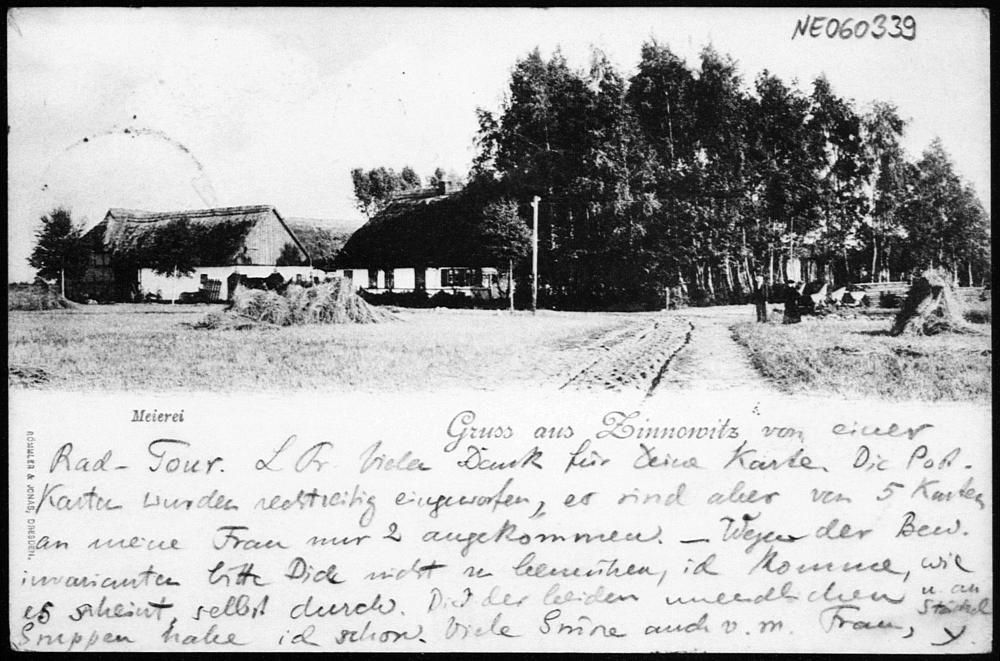 NE060339
Meierei
Gruss aus Zinnowitz, von einer
Rad-Tour. L Pr. Vielen Dank für Deine Karten. Die Post-
Karten wurden rechtzeitig eingeworfen, es sind aber von 5 Karten
an meine Frau nur 2 angekommen. – Wegen der Bew.
invarianten bitte Dich nicht zu bemühen, ich komme, wie
es scheint, selbst durch. Die der beiden unendlichen u. an
Gruppen habe ich schon. Viele Grüsse auch v. m. Frau,
RÖMMLER & JONAS, DRESDEN.